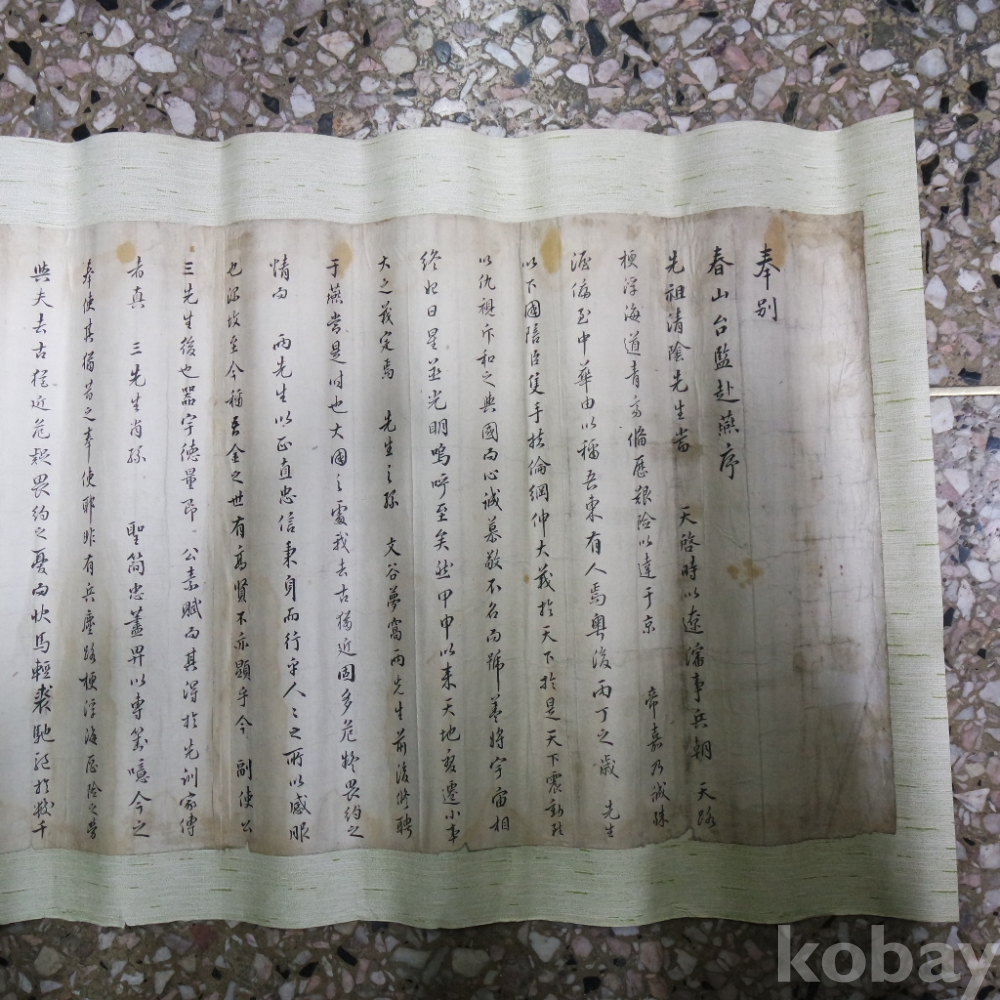 奉別
春山台監赴燕序
先祖清陰先生當 天啓時以遼瀋事兵朝 天路
梗浮海道青齊備歷艱險以達于京 帝嘉乃誠殊
渥偏至中華由以稱吾東有人焉粤後丙丁之歲 先生
以下國陪臣隻手扶倫綱伸大義於天下於是天下震動
以仇視斥和之與國而心誠慕敬不名而號蓋將宇宙相
終始日星並光明嗚呼至矣然甲申以来天地変遷小事
大之義定焉 先生之孫 文谷夢窩兩先生前後修聘
于燕當是時也大國之處我去古猶近固多危疑畏約之
情而 兩先生以正直忠信秉身而行乎人之所以感服
也深故至今稱吾金之世有高賢不亦顯乎今 副使公
三先生後也器宇德量昂 公素賦而其得於先訓家傳
者真 三先生肖孫 聖簡忠藎畀以專對噫今之
奉使其猶昔之奉使耶非有兵塵路梗浮海歷險之勞
與夫去古猶近危疑畏約之憂而快馬輕裘馳詎於數千
kobay